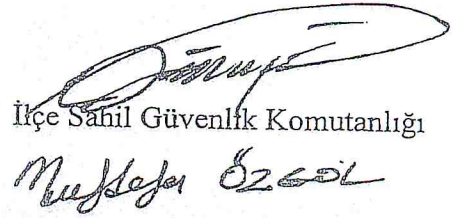 İlçe Sahil Güvenlik Komutanlığı
Mustafa ÖZGÖL